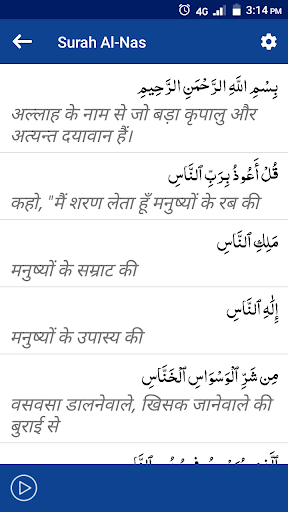 4G 3:14 PM
Surah Al-Nas
بِسْمِ اللَّهِ الرَّحْمَنِ الرَّحِيمِ
अल्लाह के नाम से जो बड़ा कृपालु और
अत्यन्त दयावान हैं।
قُلْ أَعُوذُ بِرَبِّ ٱلنَّاسِ
कहो, "मैं शरण लेता हूँ मनुष्यों के रब की
مَلِكِ ٱلنَّاسِ
मनुष्यों के सम्राट की
إِلَٰهِ ٱلنَّاسِ
मनुष्यों के उपास्य की
مِن شَرِّ ٱلْوَسْوَاسِ ٱلْخَنَّاسِ
वसवसा डालनेवाले, खिसक जानेवाले की
बुराई से